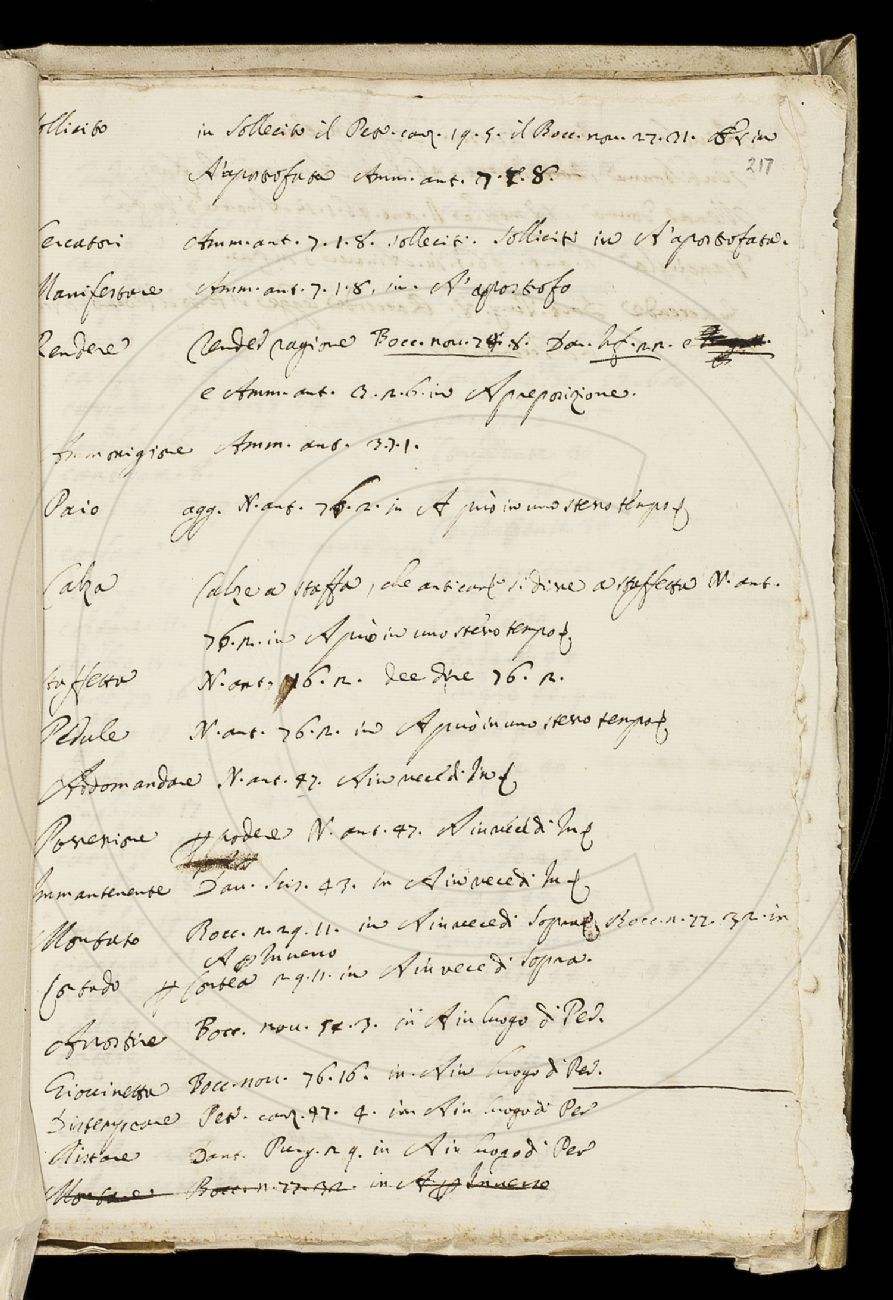 Sollicito in Sollecito il Petr. canz. 19. 5. il Bocc. nov. 27. 31. in
217
A' apostofata Amm. ant. 7. 1. 8.
Cercatori Amm. ant. 7. 1. 8. solleciti. Solliciti in A' apostofata.
Manifestare Amm. ant. 7. 1. 8. in A' apostrofo
Rendere Render ragione Bocc. nov. 74. 8. Dan. Inf. 22. e
e Amm. ant. 3. 2. 6. in A preposizione.
Amm. ant. 3. 7. 1.
Paio agg. N. ant. 76. 2. in A più in uno stesso tempo
Calza Calze a staffa, che si disse a staffetta N. ant.
76. 2. in A più in uno stesso tempo
Staffetta N. ant. 16. 2. dee dire 76. 2.
Pedule N. ant. 76. 2. in A più in uno stesso tempo
Addomandare N. ant. 47. A in vece di In
Possessione N. ant. 47. A in vece di In
Immantenente Dav. Scis. 43. in A in vece di In
Montato Bocc. n. 29. 11. in A in vece di Sopra Bocc. n. 77. 32. in
A Inverso
Contado 29. 11. in A in vece di Sopra.
Bocc. nov. 54. 3. in A in luogo di Per.
Giovinetta Bocc. nov. 76. 16. in A in luogo di Per.
Petr. canz. 47. 4. in A in luogo di Per
Aistare Dant. Purg. 29. in A in luogo di Per
Montare. Bocc. n. 77. 32. in A Inverso